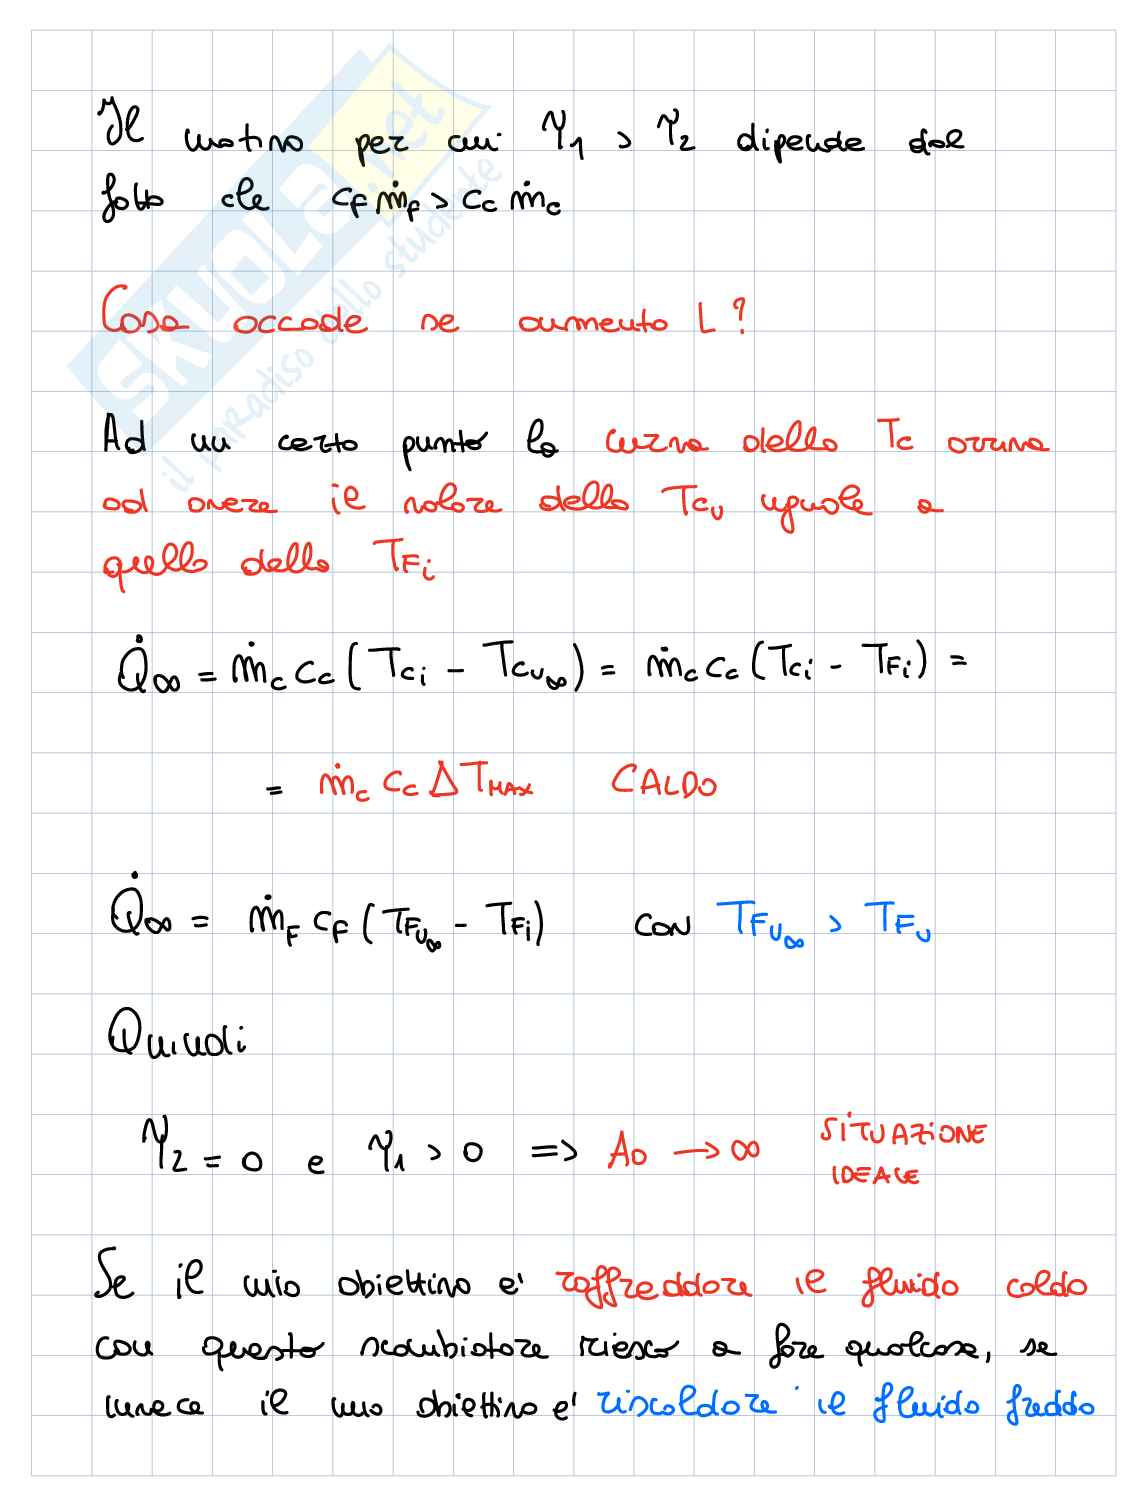 Il motivo per cui γ₁ > γ₂ dipende dal
fatto che c_F ṁ_F > c_c ṁ_c
Cosa accade se aumento L?
Ad un certo punto la curva della Tc arriva
ad avere il valore della Tc_U uguale a
quello della T_Fi
Q̇∞ = ṁ_c c_c (T_ci - T_cU∞) = ṁ_c c_c (T_ci - T_Fi) =
= ṁ_c c_c ΔT_MAX CALDO
Q̇∞ = ṁ_F c_F (T_FU∞ - T_Fi) CON T_FU∞ > T_FU
Quindi
γ₂ = 0 e γ₁ > 0 => A₀ → ∞ SITUAZIONE
IDEALE
Se il mio obiettivo e' raffreddare il fluido caldo
con questo scambiatore riesco a fare qualcosa, se
invece il mio obiettivo e' riscaldare il fluido freddo
SKUOLA.net
il paradiso dello studente